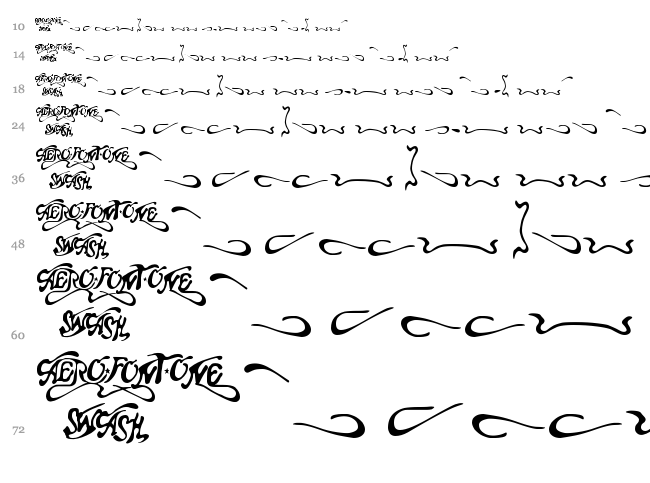 10
14
18
24
AERO·FONT·ONE
SWASH
36
AERO·FONT·ONE
SWASH
48
AERO·FONT·ONE
SWASH
60
AERO·FONT·ONE
SWASH
72
AERO·FONT·ONE
SWASH